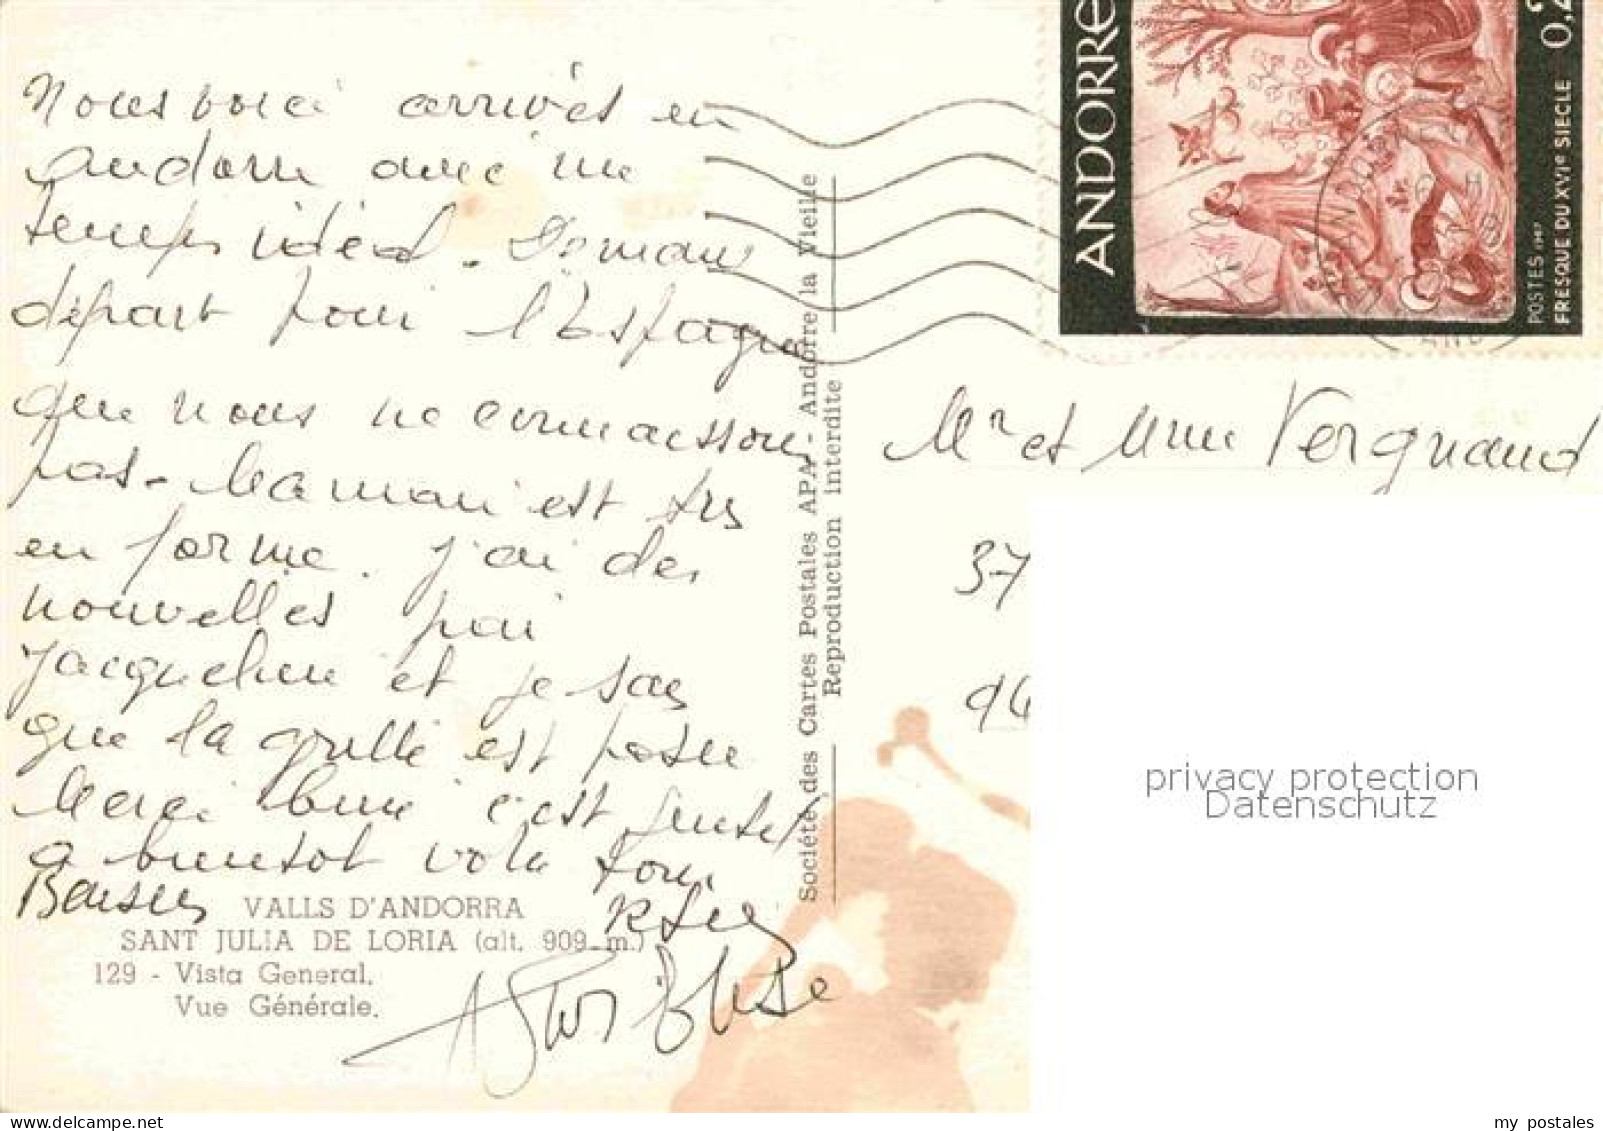 Nous voici arrivés en
Andorre avec un
temps idéal. Demain
départ pour l'Espagne
que nous ne connaissons
pas. Maman est très
en forme. J'ai des
nouvelles par
Jacqueline et je sais
que la grille est posée
Merci
c'est gentil
a bientot
Baisers
VALLS D'ANDORRA
SANT JULIA DE LORIA (alt. 909 m.)
129 - Vista General.
Vue Générale.
Société des Cartes Postales APA - Andorre la Vieille
Reproduction interdite
ANDORRE
POSTES 1967
FRESQUE DU XVIe SIECLE
0,2
Mr et Mme Vergnaud
37
94
privacy protection
Datenschutz
my postales